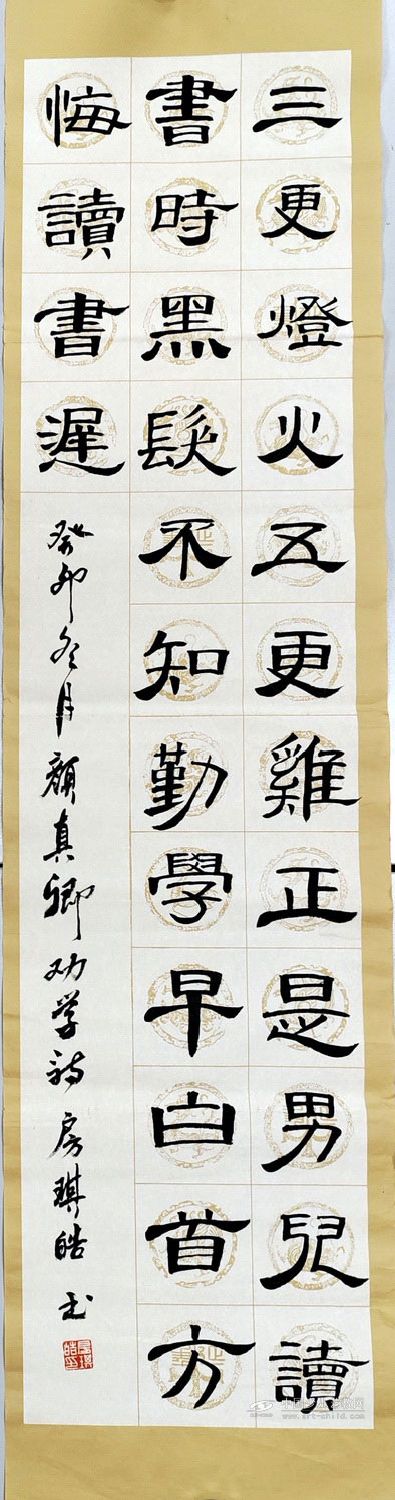 三更燈火五更雞正是男兒讀
書時黑髮不知勤學早白首方
悔讀書遲
癸卯冬月顏真卿劝学诗房琪皓书
www.art-child.com